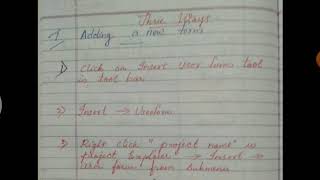 Three Ways
1 Adding a new form
1) Click on Insert User form tool
in tool bar
2) Insert → Userform
3) Right click "project name" in
project Explorer → Insert →
User form from Submenu